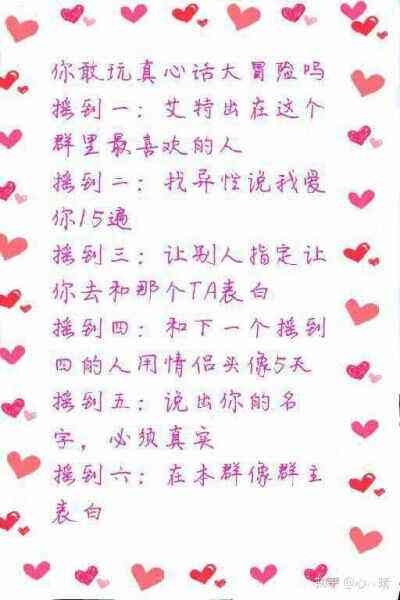 你敢玩真心话大冒险吗
摇到一：艾特出在这个
群里最喜欢的人
摇到二：找异性说我爱
你15遍
摇到三：让别人指定让
你去和那个TA表白
摇到四：和下一个摇到
四的人用情侣头像5天
摇到五：说出你的名
字，必须真实
摇到六：在本群像群主
表白
知乎